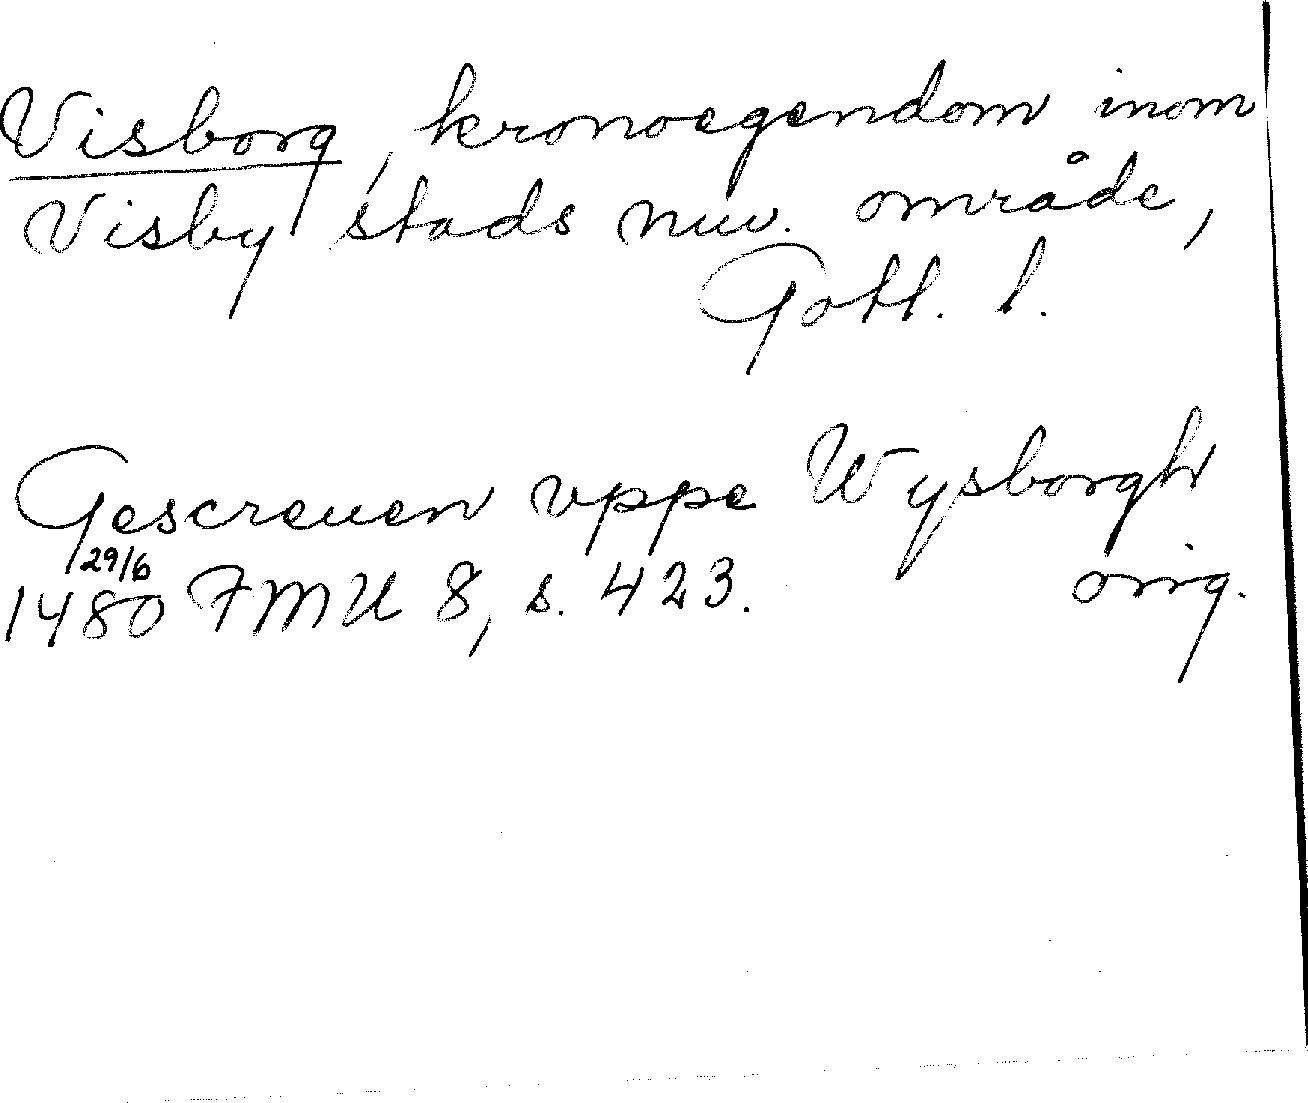 Visborg, kronoegendom inom
Visby stads nuv. område,
Gotl. l.
Gescreuen vppe Wysborgh
29/6
1480 FMU 8, s. 423. orig.